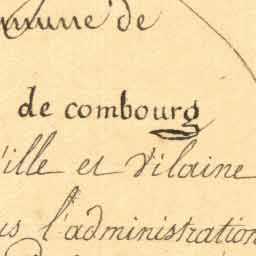 commune de
de combourg
'ille et Vilaine
us l'administration